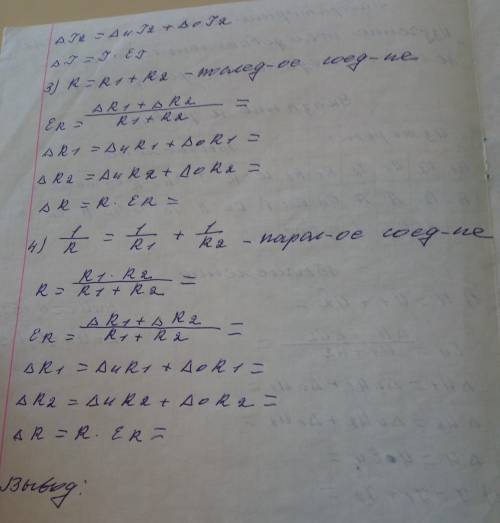 ΔI2 = ΔиI2 + ΔоI2
ΔI = I · EI
3) R = R1 + R2 - послед-ое соед-ие
ER = (ΔR1 + ΔR2)/(R1 + R2) =
ΔR1 = ΔиR1 + ΔоR1 =
ΔR2 = ΔиR2 + ΔоR2 =
ΔR = R · ER =
4) 1/R = 1/R1 + 1/R2 - парал-ое соед-ие
R = (R1 · R2)/(R1 + R2) =
ER = (ΔR1 + ΔR2)/(R1 + R2) =
ΔR1 = ΔиR1 + ΔоR1 =
ΔR2 = ΔиR2 + ΔоR2 =
ΔR = R · ER =
Вывод: